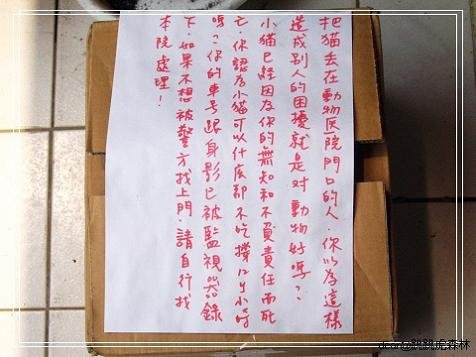 把猫丢在動物医院門口的人.你以為這樣
造成別人的困擾就是对動物好嗎?
小猫已經因為你的無知和不負責任而死
亡.你認為小猫可以什麼都不吃撐12小時
嗎?你的車号跟身影已被監視器錄
下.如果不想被警方找上門.請自行找
本院處理!
@跳跳虎森林